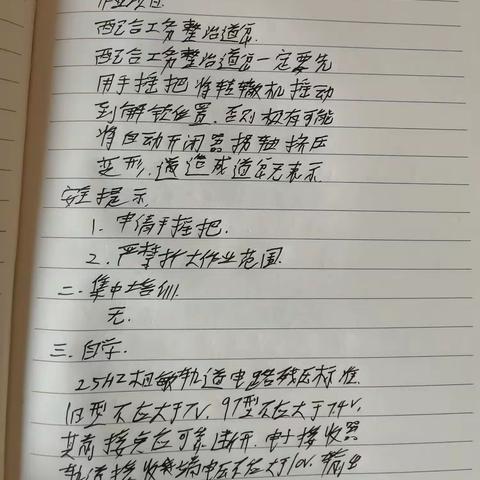 作业项目
配合工务整治道岔.
配合工务整治道岔一定要先
用手摇把将转辙机摇动
到解锁位置.否则极有可能
将自动开闭器拐轴挤压
变形.造成道岔无表示
安全提示
1.申请手摇把.
2.严禁扩大作业范围.
二.集中培训.
无.
三.自学.
25HZ相敏轨道电路残压标准.
旧型不应大于7V.97型不应大于7.4V.
其前接点应可靠断开.电子接收器
轨道接收端电压不应大于10V.输出